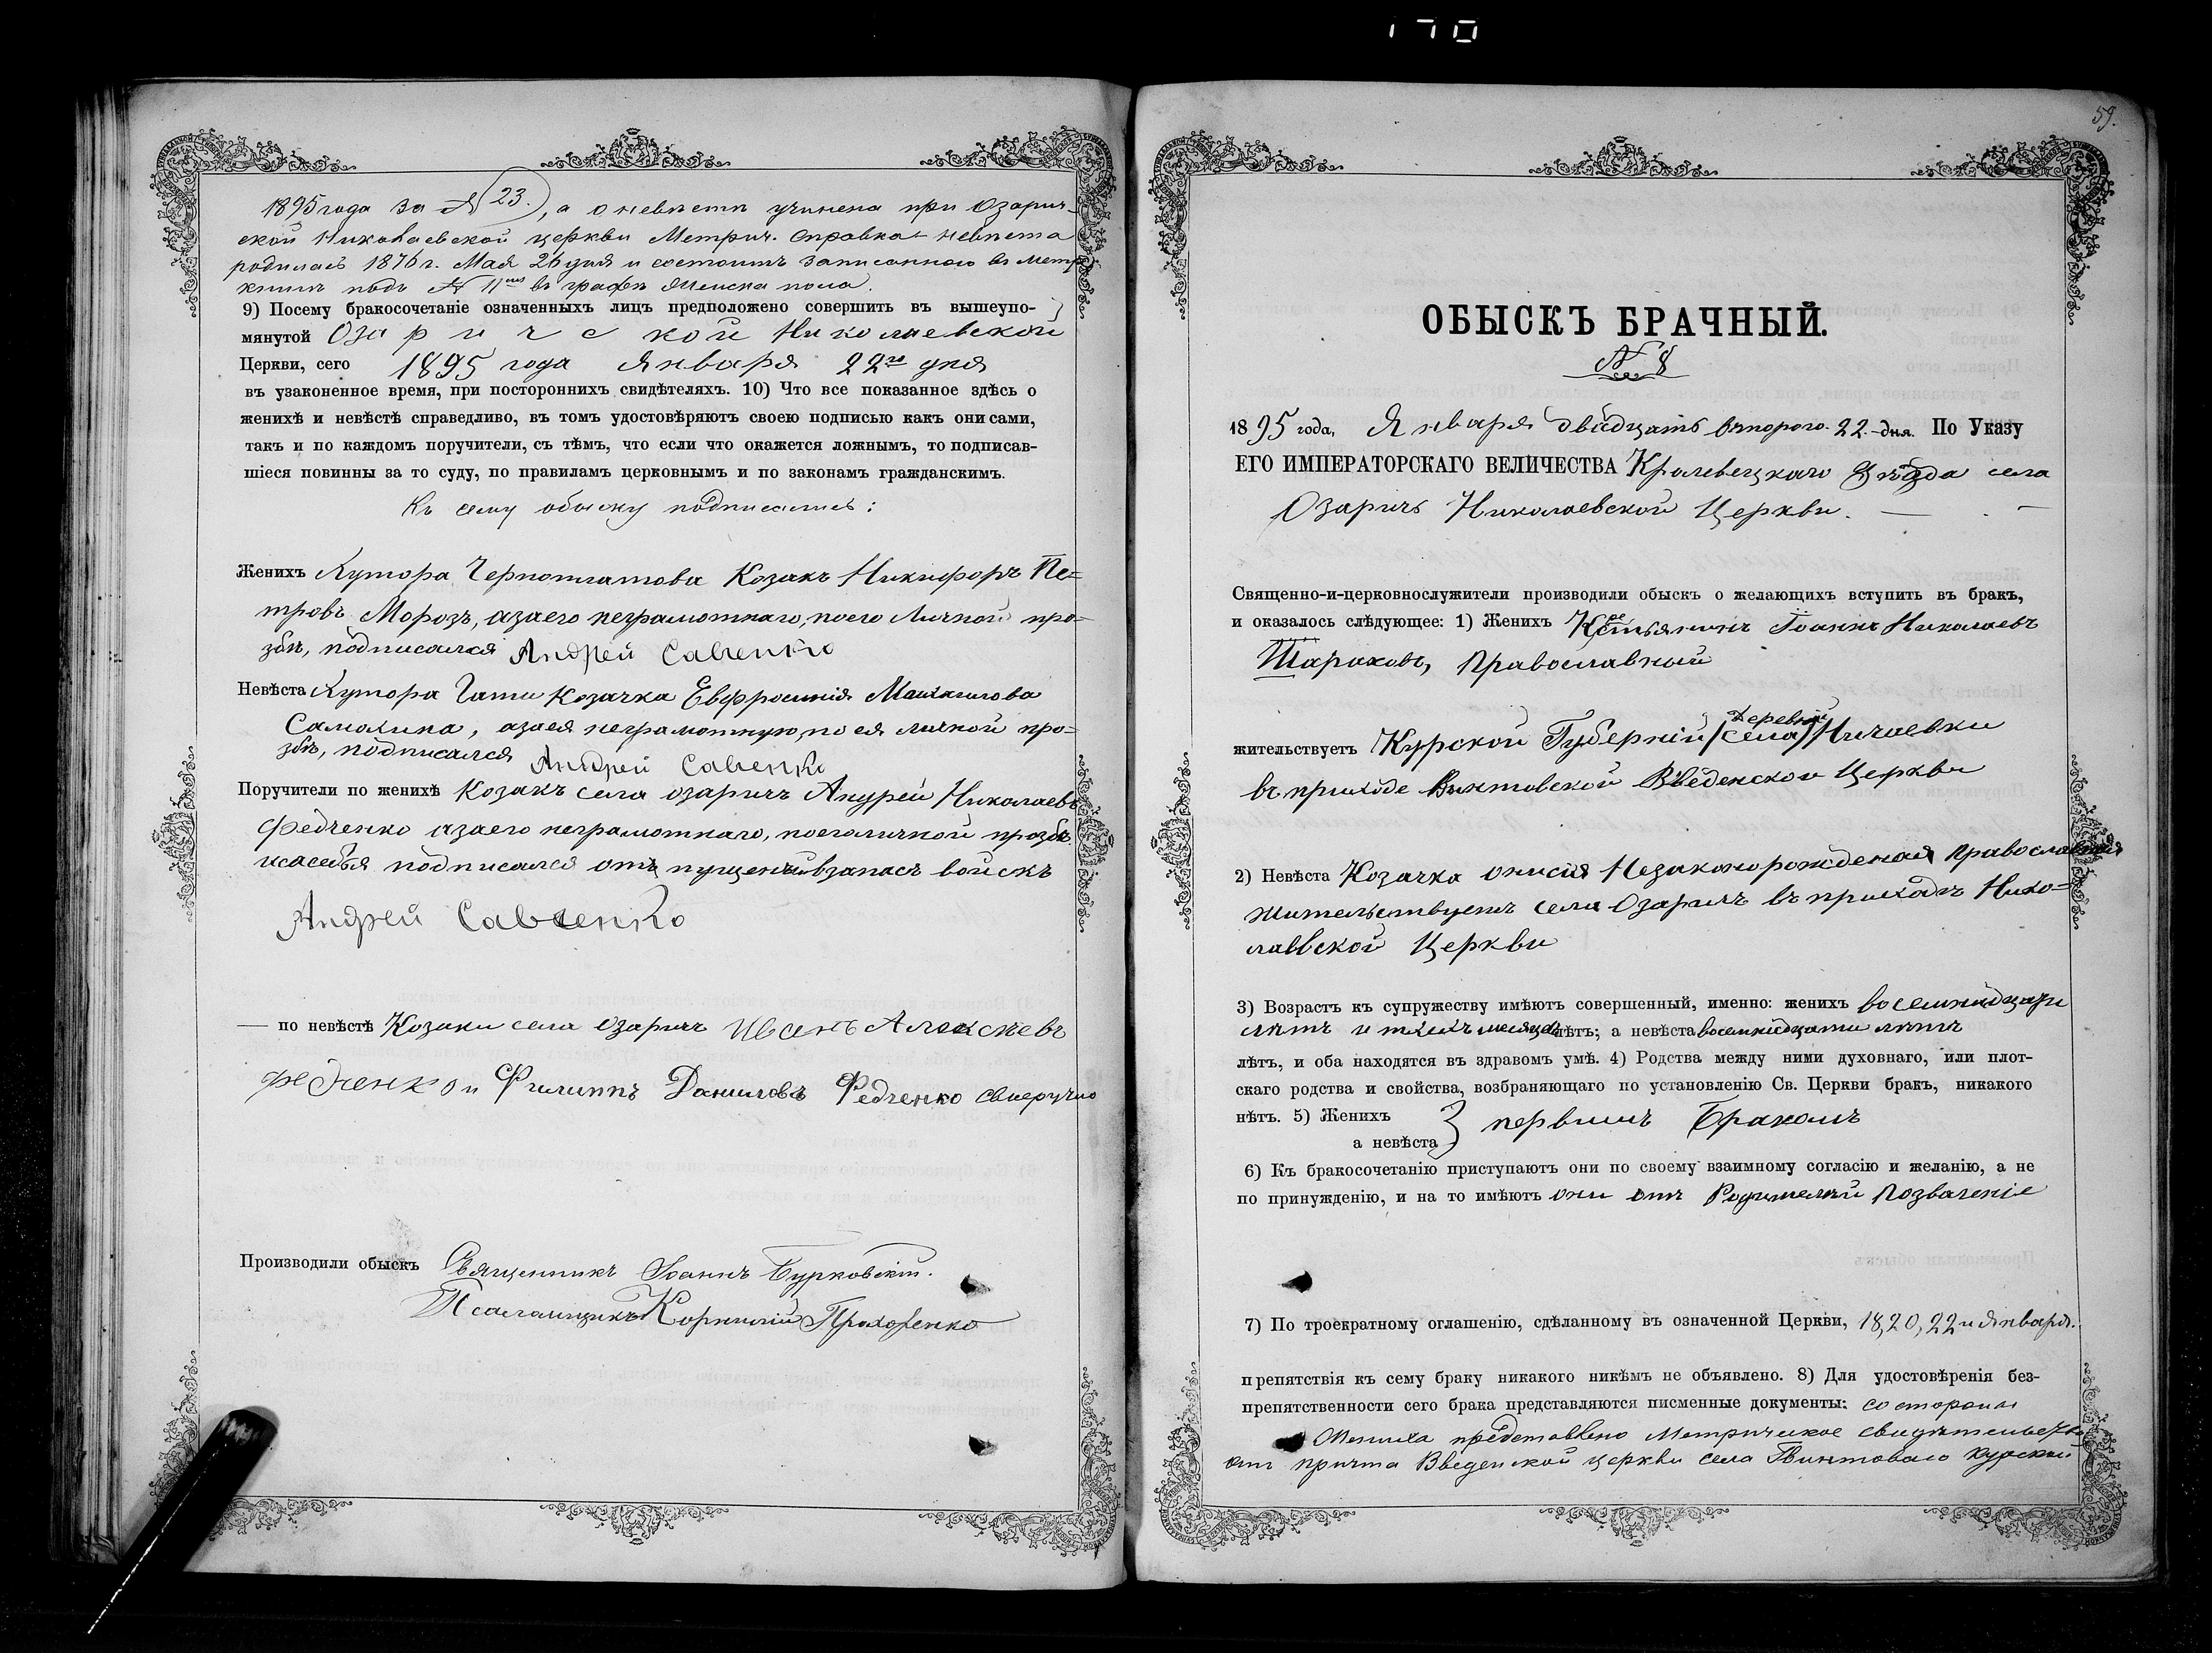 170
1895 года за № 23., а о невѣстѣ учинена при Озарич-
ской Николаевской церкви Метрич. справка невѣста
родилась 1876 г. Мая 26 дня и состоитъ записанною въ метр.
книгѣ подъ № 11 въ графѣ Женска пола.
9) Посему бракосочетаніе означенныхъ лицъ предположено совершить въ вышеупо-
мянутой Озаричской Николаевской
Церкви, сего 1895 года Января 22го дня
въ узаконенное время, при постороннихъ свидѣтеляхъ. 10) Что все показанное здѣсь о
женихѣ и невѣстѣ справедливо, въ томъ удостовѣряютъ своею подписью какъ они сами,
такъ и по каждомъ поручители, съ тѣмъ, что если что окажется ложнымъ, то подписав-
шіеся повинны за то суду, по правиламъ церковнымъ и по законамъ гражданскимъ.
Къ сему обыску подписались:
Женихъ Хутора Козакъ Никифоръ Пе-
тровъ Морозъ, азаего неграмотнаго, поего Личной про-
збѣ, подписался Андрей Савченко
Невѣста Хутора Гати козачка Евфросинія
азаея неграмотную, по ея личной про-
збѣ, подписался Андрей Савченко
Поручители по женихѣ Козакъ села озаричъ Андрей Николаевъ
Федченко азаего неграмотнаго, поеголичной прозбѣ
исасебя подписался взапасъ войскъ
Андрей Савченко
— по невѣстѣ Козаки села Озаричъ Иванъ Алексѣевъ
Федченко и Филиппъ Даниловъ Федченко
Производили обыскъ Священникъ Іоаннъ Бурковскій.
Псаломщикъ Корнилій Прохоренко
59.
ОБЫСКЪ БРАЧНЫЙ.
№ 8
1895 года, Января двадцать второго. 22.-дня. По Указу
ЕГО ИМПЕРАТОРСКАГО ВЕЛИЧЕСТВА Кролевецкаго уѣзда села
Озаричъ Николаевской Церкви.
Священно-и-церковнослужители производили обыскъ о желающихъ вступить въ бракъ,
и оказалось слѣдующее: 1) Женихъ Іоаннъ Николаевъ
Шараховъ, Православный
жительствуетъ Курской Губерніи (села) деревни Ничаевки
въ приходѣ Введенской Церкви
2) Невѣста Козачка Незаконорожденая православная
жительствуетъ села Озаричъ въ приходѣ Нико-
лаевской Церкви
3) Возрастъ къ супружеству имѣютъ совершенный, именно: женихъ восемнадцати
лѣтъ и лѣтъ; а невѣста восемнадцати лѣтъ
лѣтъ, и оба находятся въ здравомъ умѣ. 4) Родства между ними духовнаго, или плот-
скаго родства и свойства, возбраняющаго по установленію Св. Церкви бракъ, никакого
нѣтъ. 5) Женихъ
а невѣста } первымъ Бракомъ
6) Къ бракосочетанію приступаютъ они по своему взаимному согласію и желанію, а не
по принужденію, и на то имѣютъ они отъ Родителей
7) По троекратному оглашенію, сдѣланному въ означенной Церкви, 18, 20, 22 и Января.
препятствія къ сему браку никакого никѣмъ не объявлено. 8) Для удостовѣренія без-
препятственности сего брака представляются писменные документы: со стороны
Жениха представлено Метрическое свидѣтельство
отъ причта Введенской церкви села Винтоваго Курской